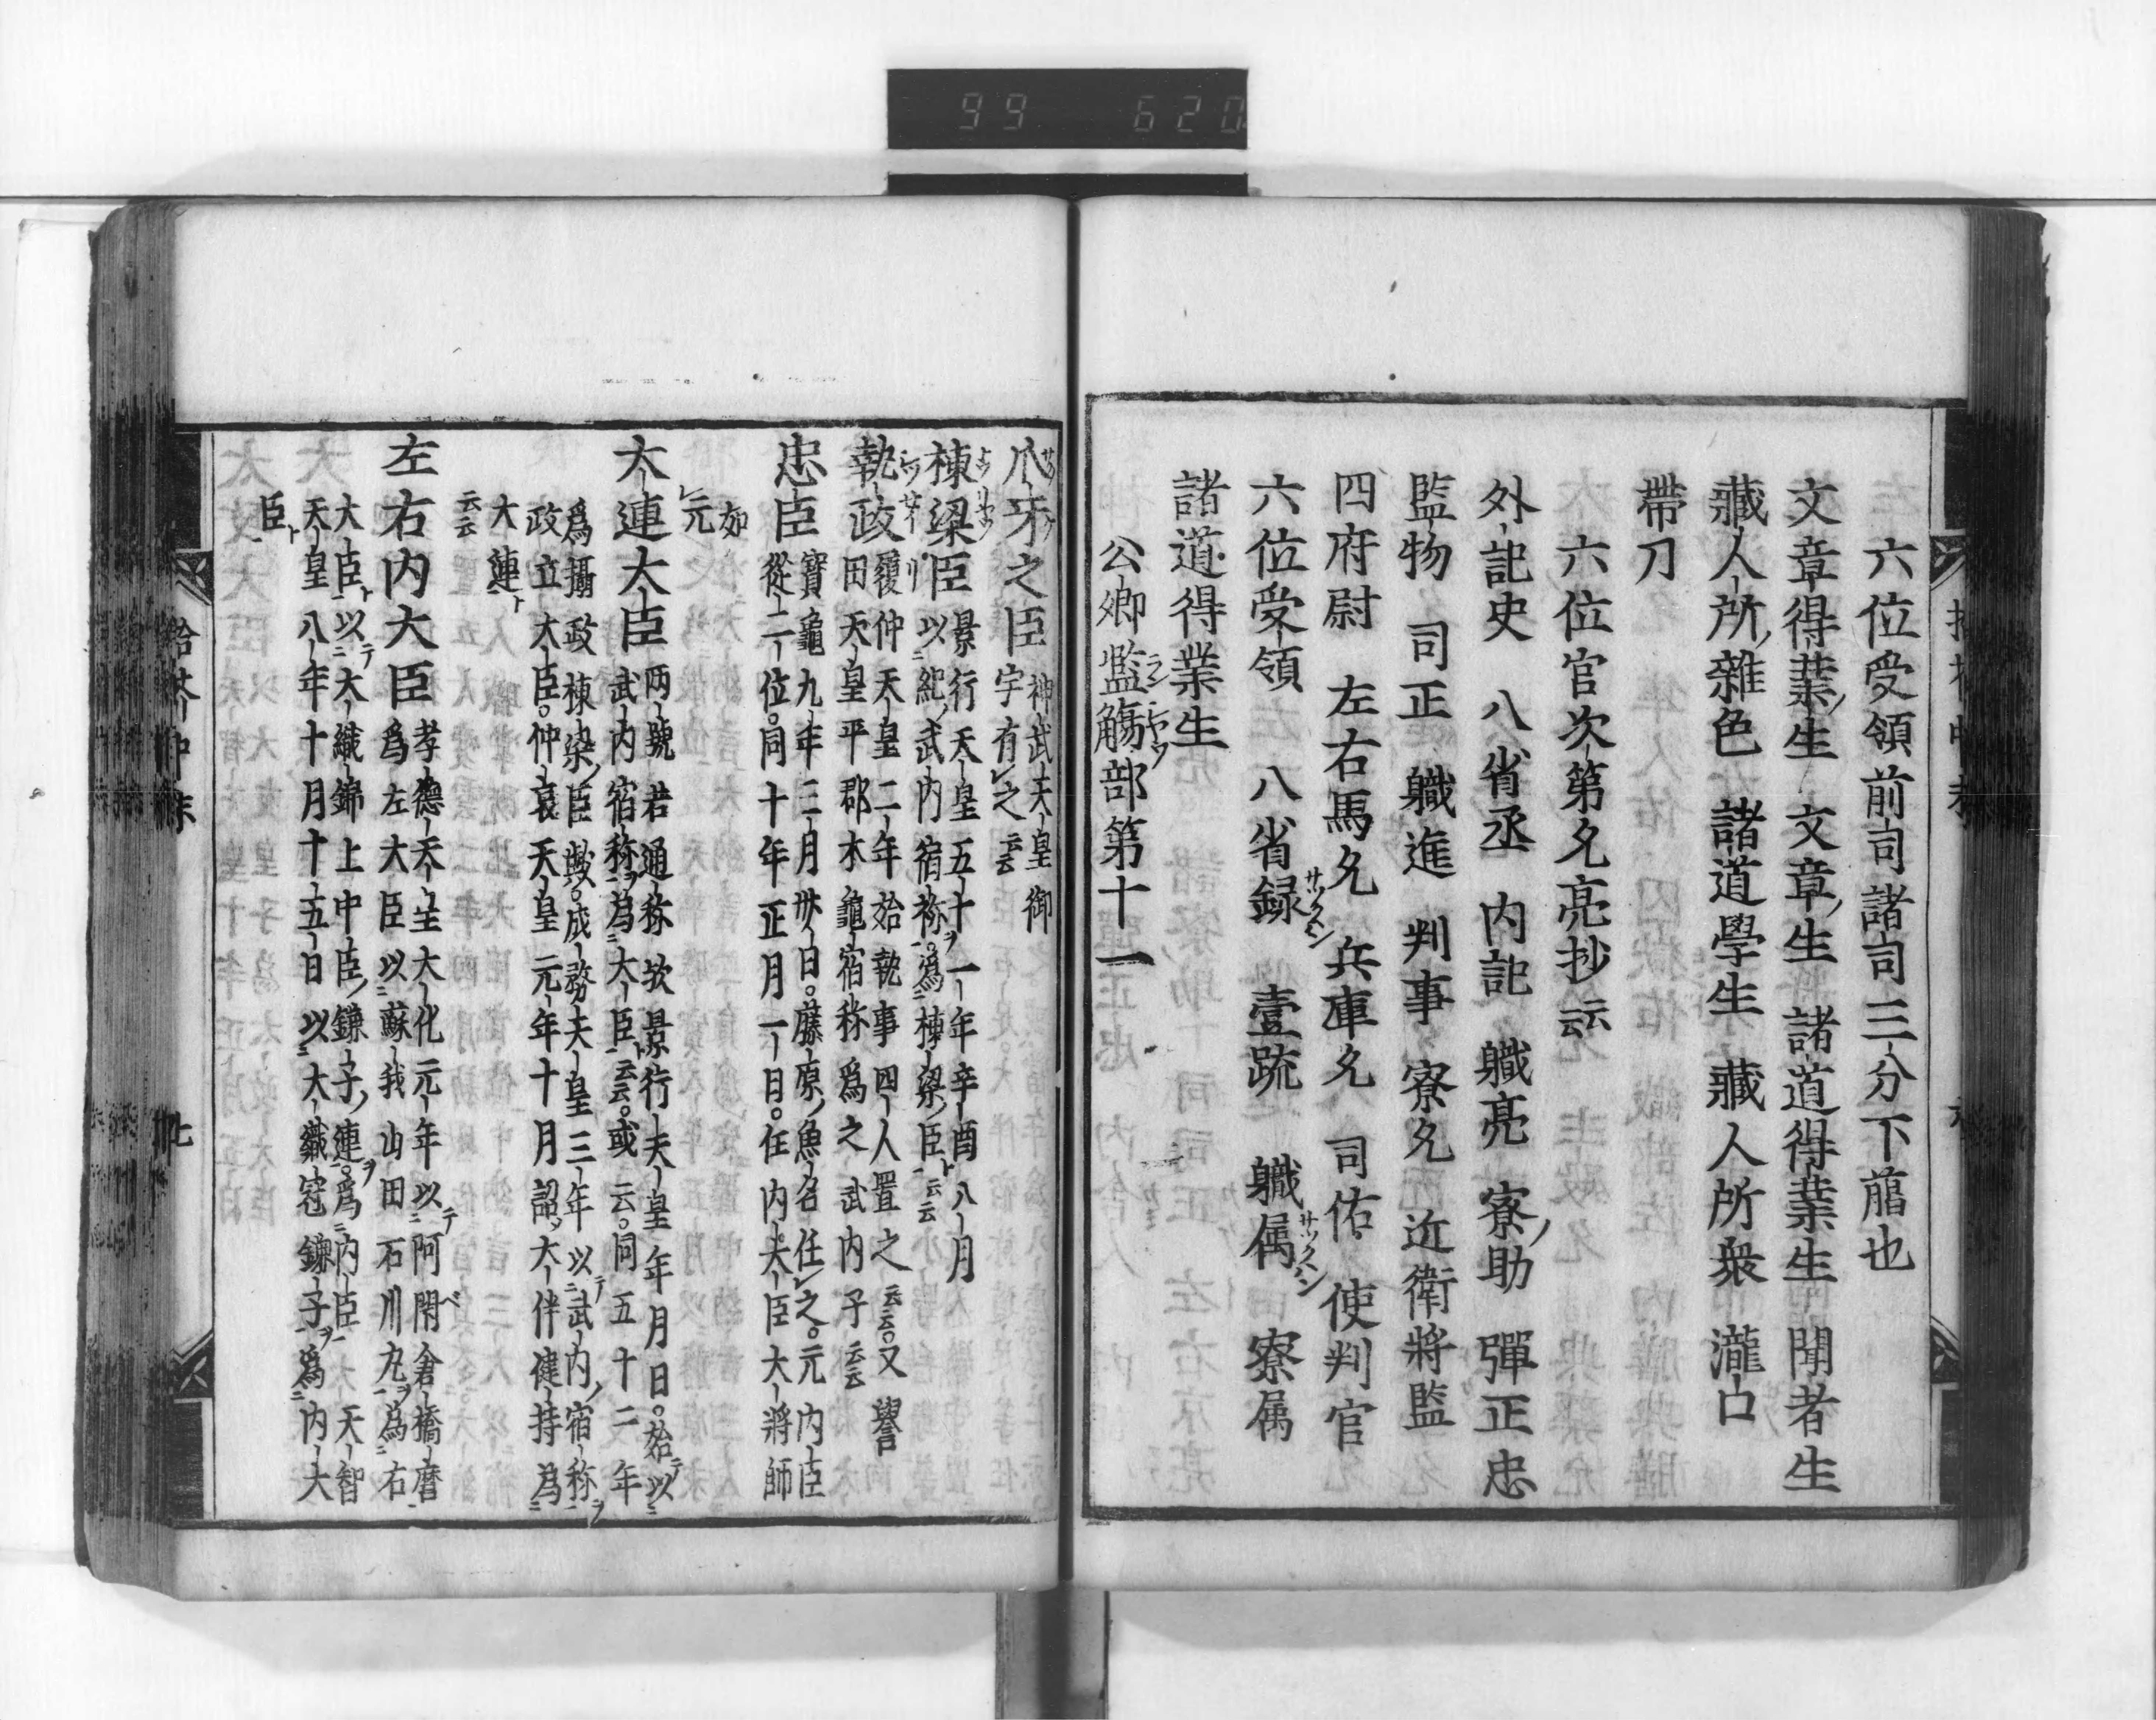 99 620
六位受領前司諸司三分下﨟也
文章得業生 文章生 諸道得業生 聞者生
藏人所雜色 諸道學生 藏人所衆 瀧口
帶刀
六位官次第允亮抄云云
外記史 八省丞 內記 職亮 寮助 彈正忠
監物 司正 職進 判事 寮允 近衛將監
四府尉 左右馬允 兵庫允 司佑 使判官
六位受領 八省録 壹䟽 職属 寮属
諸道得業生
公卿濫觴部第十一
爪牙之臣 神武天皇御
宇有之云云
棟梁臣 景行天皇五十一年辛酉八月
以紀武内宿祢爲棟梁臣云云
執政 履仲天皇二年始執事四人置之云云又譽
田天皇平郡木龜宿祢爲之武内子云云
忠臣 寶龜九年三月卅日藤原魚名任之元内臣
從二位同十年正月一日任内大臣大將師
如
元
大連大臣 兩號若通称欤景行天皇年月日始以
武内宿祢爲大臣云云或云同五十二年
爲攝政棟梁臣歟成務天皇三年以武内宿祢
政立大臣仲哀天皇元年十月詔大伴健持爲
大連
云云
左右内大臣 孝德天皇大化元年以阿閇倉橋麿
爲左大臣以蘇我山田石川丸爲右
大臣以大織錦上中臣鎌子連爲内臣 天智
天皇八年十月十五日以大織冠鎌子爲内大
臣
拾芥中末 卅七